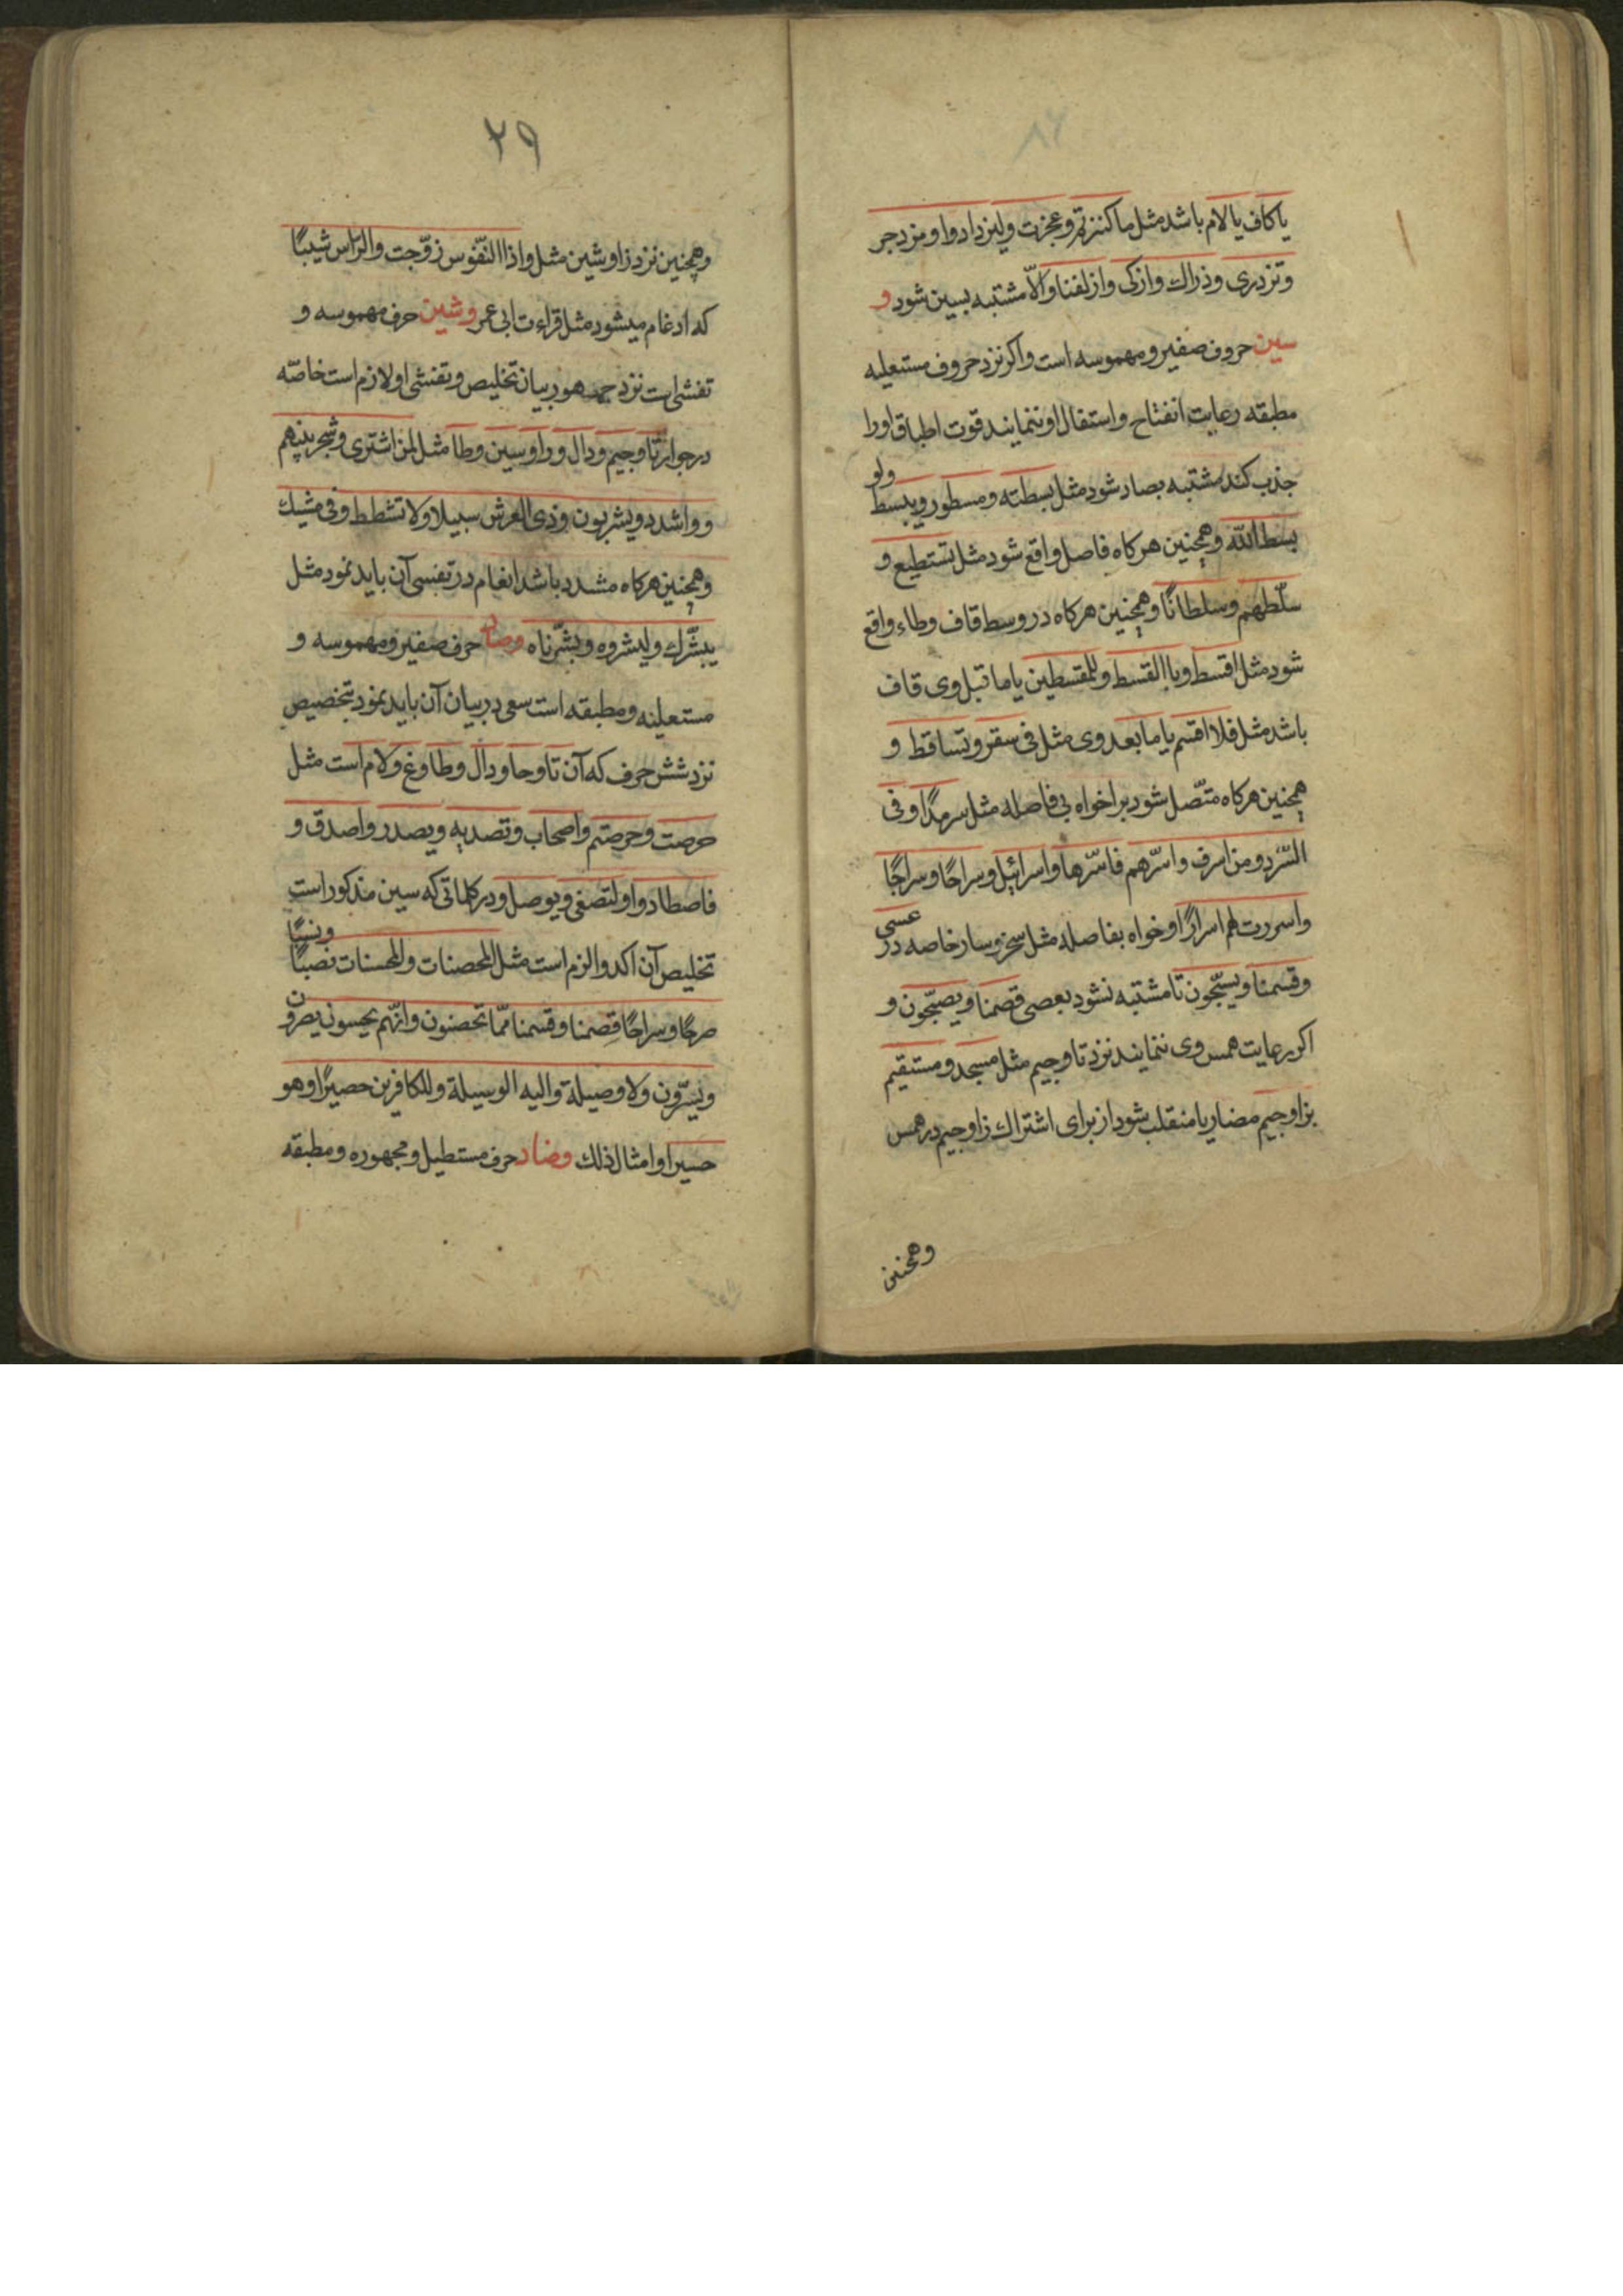 یا کاف یا لام باشد مثل ما کنزتم وعجزت ولیزدادوا ومزدجر
وتزدری وذراك وازکی وازلفنا والّا مشتبه بسین شود و
سین حروف صفیر ومهموسه است واکر نزد حروف مستعلیه
مطبقه رعایت انفتاح واستفال او ننمایند قوت اطباق اورا
جذب کند مشتبه بصاد شود مثل بسطته ومسطور ویبسط ولو
بسط الله وهمچنین هرکاه فاصل واقع شود مثل تستطیع و
سلّطهم وسلطانًا وهمچنین هرکاه در وسط قاف وطاء واقع
شود مثل اقسط وباالقسط وللمقسطین یا ما قبل وی قاف
باشد مثل فلا اقسم یا ما بعد وی مثل فی سقر وتساقط و
همچنین هرکاه متّصل شود برا خواه بی فاصله مثل سرمدًا وفی
السّرد ومن اسرف واسرّهم فاسرّها واسرائیل وسراحًا وسراجًا
واسررت لهم اسرارًا وخواه بفاصله مثل سخر وسار خاصه در عسی
وقسمنا ویسبّحون تا مشتبه نشود بعصی قصمنا ویصبّحون و
اکر رعایت همس وی ننمایند نزد تا وجیم مثل مسجد ومستقیم
بزا وجیم مضار یا منقلب شود از برای اشتراك زا وجیم در همس
وهمچنین
٢٩
وهمچنین نزد زا وشین مثل واذا النّفوس زوّجت والرّاس شیبًا
که ادغام میشود مثل قراءت ابی عمر وشین حرف مهموسه و
تفشی است نزد جمهور بیان تخلیص وتفشی او لازم است خاصّه
در جوار تا وجیم ودال ورا وسین وطا مثل لمن اشتری وشجر بینهم
وواشدد ویشربون وذی العرش سبیلا ولا تشطط وفی مشیك
وهمچنین هرکاه مشدد باشد انغام در تفسی آن باید نمود مثل
یبشّرك ولبشروه وبشّرناه وصاد حرف صفیر ومهموسه و
مستعلیه ومطبقه است سعی در بیان آن باید نمود بتخصیص
نزد شش حرف که آن تا وحا ودال وطا وغ ولام است مثل
حرصت وحرصتم واصحاب وتصدیه ویصدر واصدق و
فاصطادوا ولتصغی ویوصل ودر کلماتی که سین مذکور است
تخلیص آن اکد والزم است مثل المحصنات وللمحسنات نصبًا ونسبًا
صرحًا وسراحًا قصمنا وقسمنا ممّا تحصنون وانّهم یحسبون یصرون
ویسرّون ولا وصیلة والیه الوسیلة وللکافرین حصیرًا وهو
حسیر او امثال ذلك وضاد حرف مستطیل ومجهوره ومطبقه